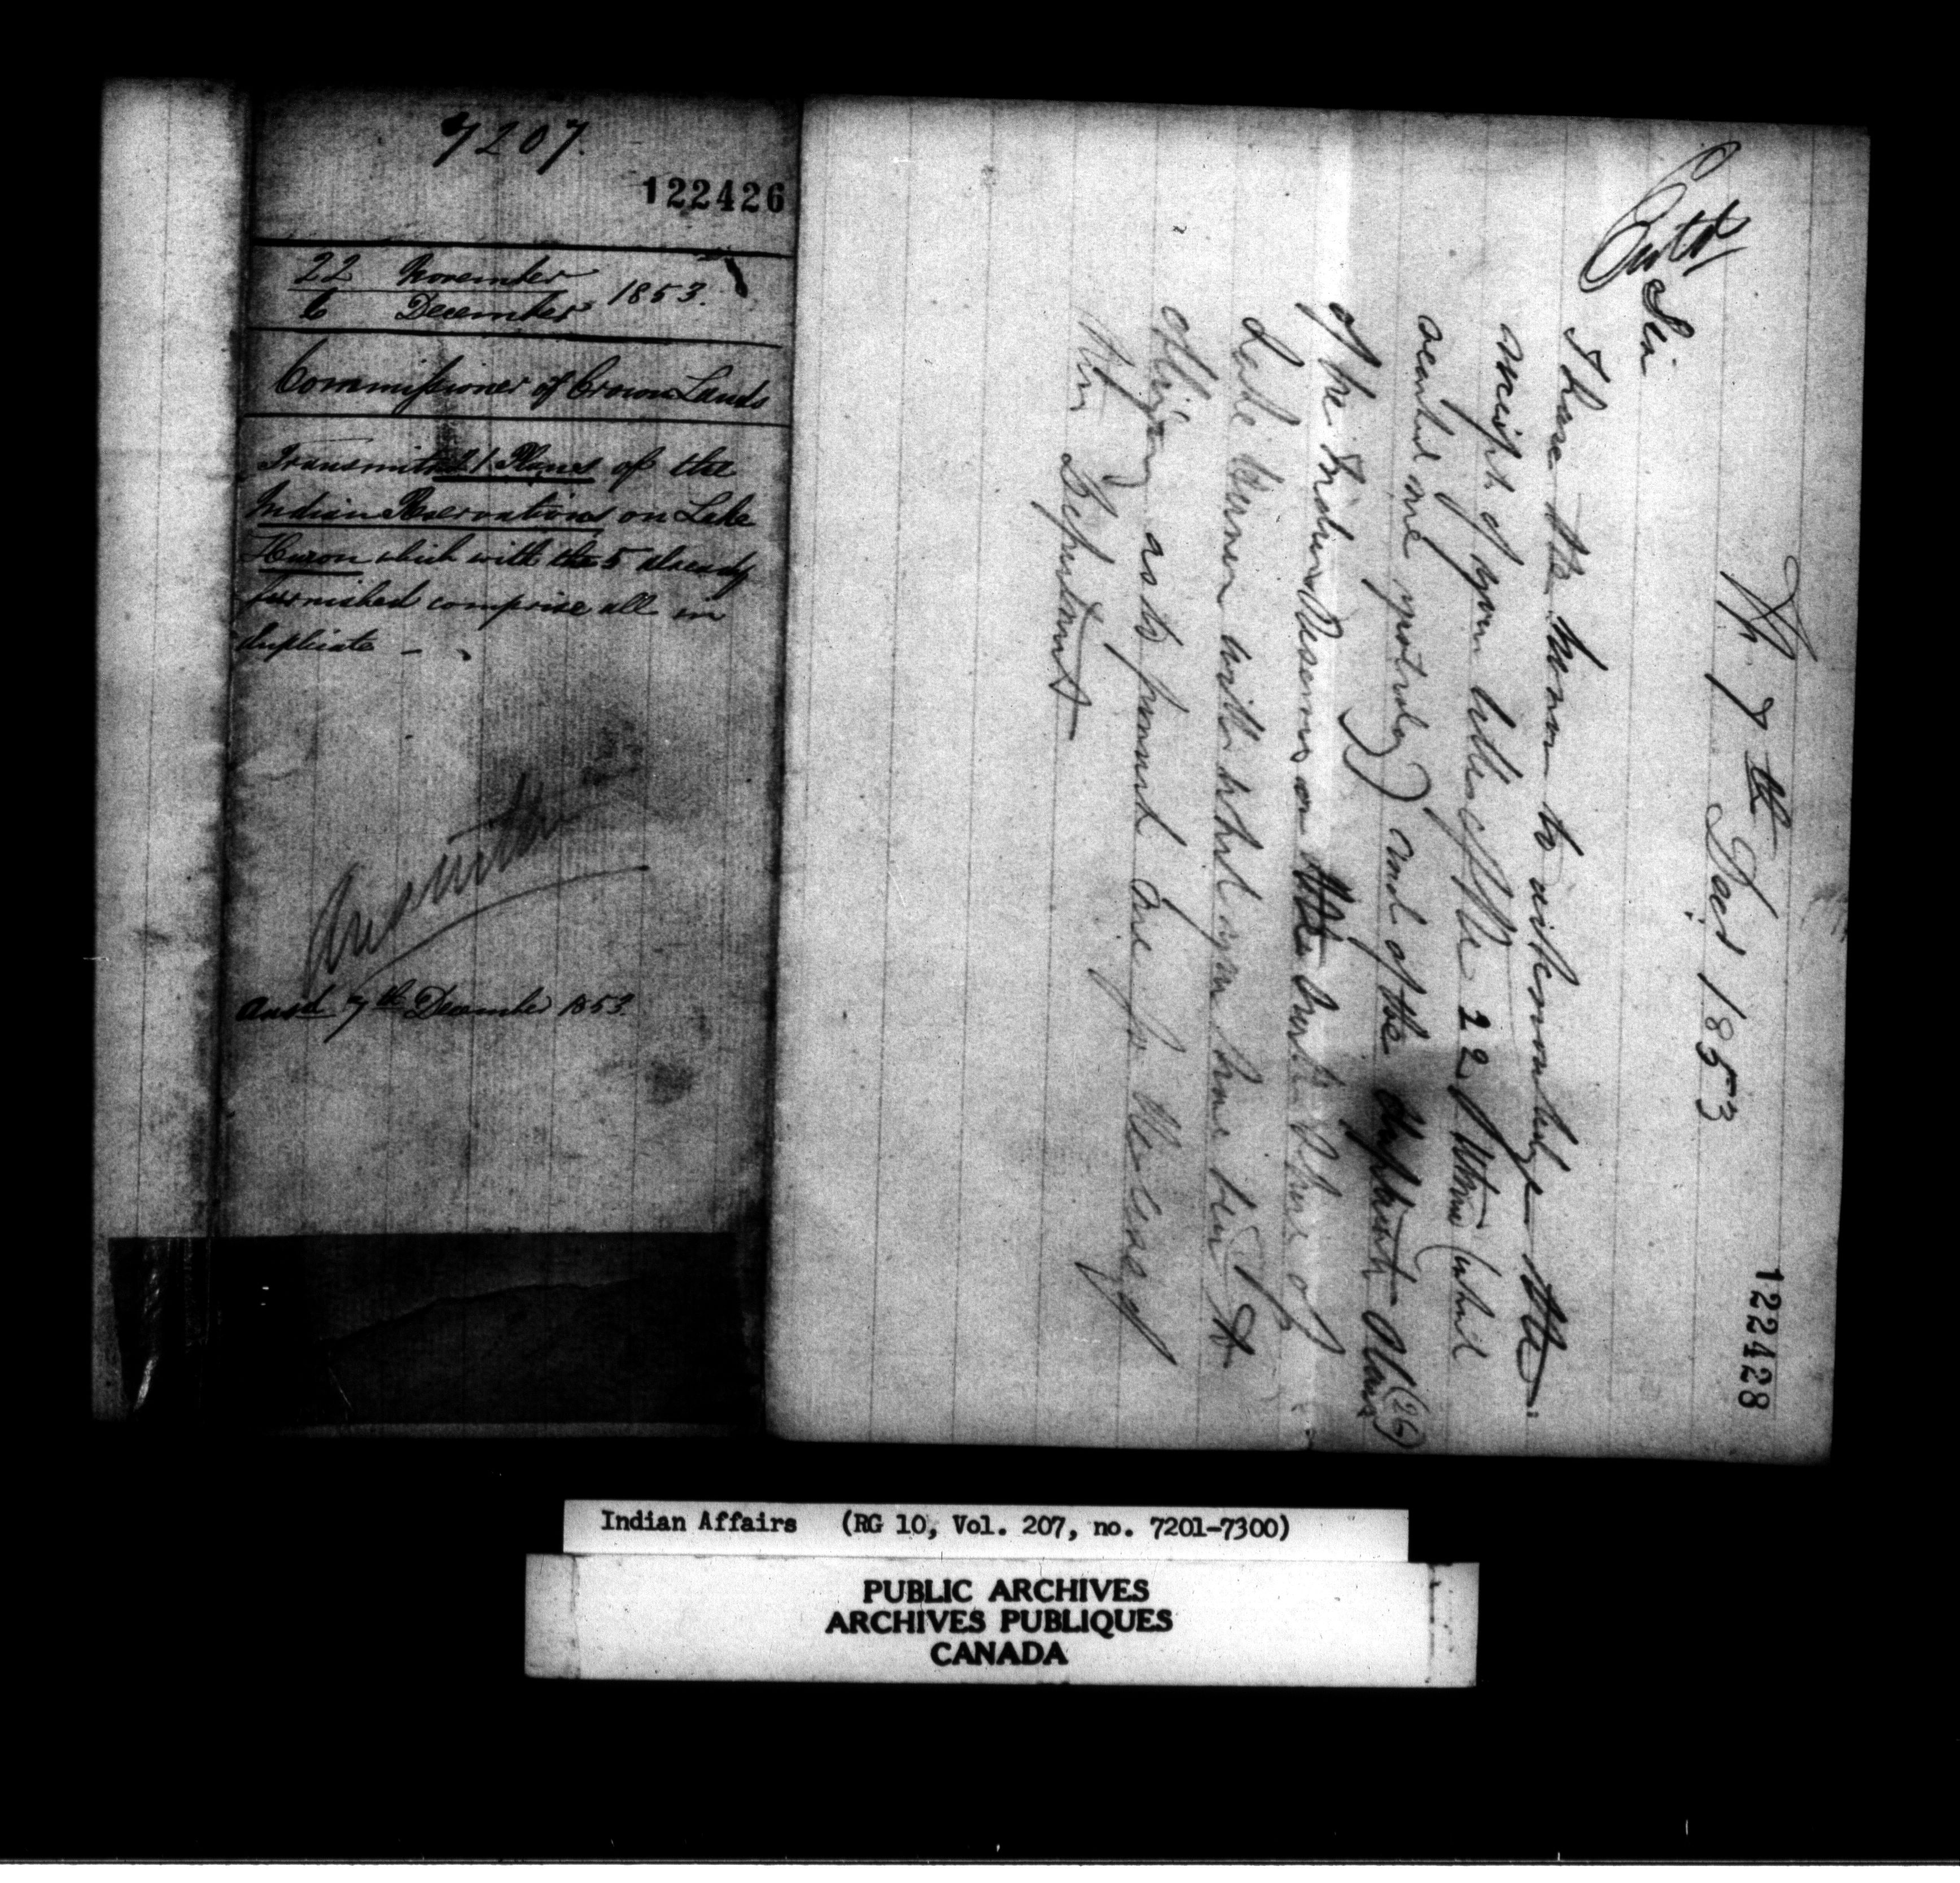 7207.
122426
22 November
6 December 1853.
Commissioner of Crown Lands
Transmits 21 Plans of the
Indian Reservations on Lake
Huron which with the 5 already
furnished comprise all in
duplicate -
ansd 7th December 1853
122428
7th Decr 1853
Sir
I have the honor to acknowledge the
receipt of your letter of the 22d Ultimo (which
reached me yesterday) and of the duplicate Plans (26)
of the Indian Reserves on the North Shore of
Lake Huron with which you have been so
obliging as to furnish me for the use of
this Department
Indian Affairs (RG 10, Vol. 207, no. 7201-7300)
PUBLIC ARCHIVES
ARCHIVES PUBLIQUES
CANADA